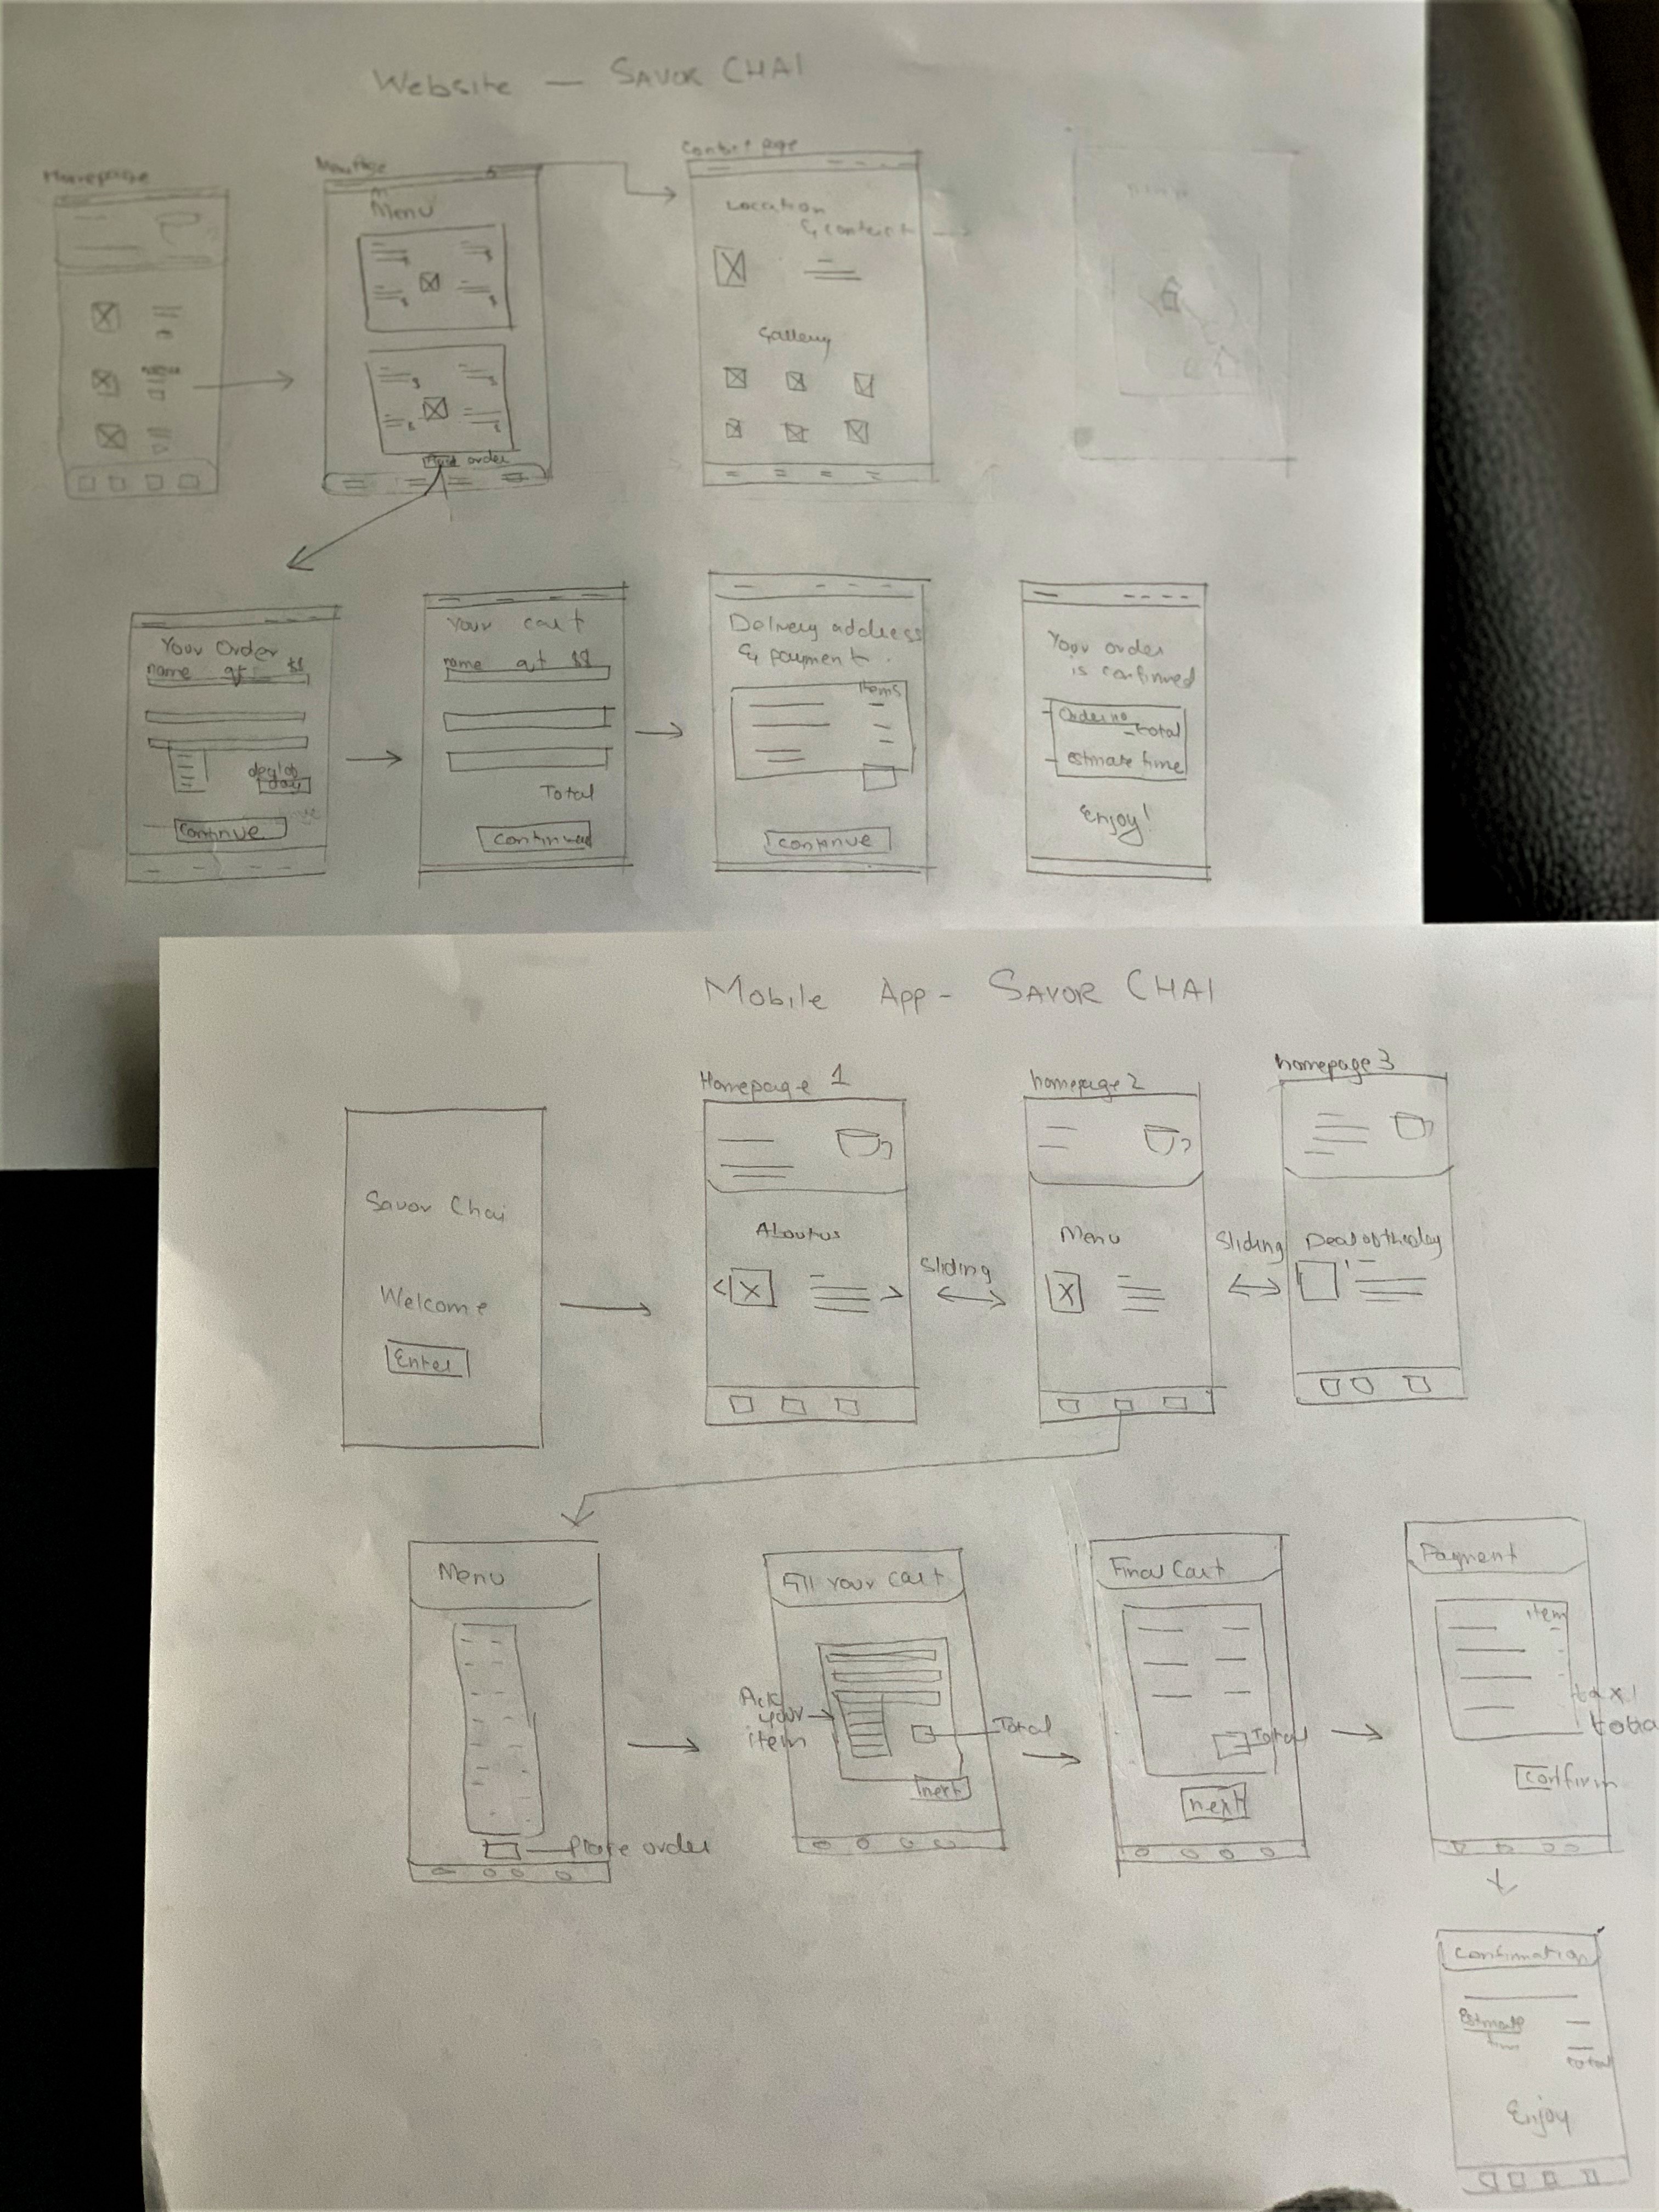 Website — SAVOR CHAI
Homepage
Menu
Location
& contact
Gallery
order
Your Order
name qt $$
deal of
day
Continue
Your cart
name qt $$
Total
Continue
Delivery address
& payment.
items
continue
Your order
is confirmed
Order no
total
estimate time
Enjoy!
Mobile App - SAVOR CHAI
Savor Chai
Welcome
Enter
Homepage 1
About us
Sliding
homepage 2
Menu
Sliding
homepage 3
Deal of the day
Menu
Place order
Fill Your Cart
your
item
Total
next
Final Cart
Total
next
Payment
item
tax
total
confirm
Confirmation
Estimate
total
Enjoy